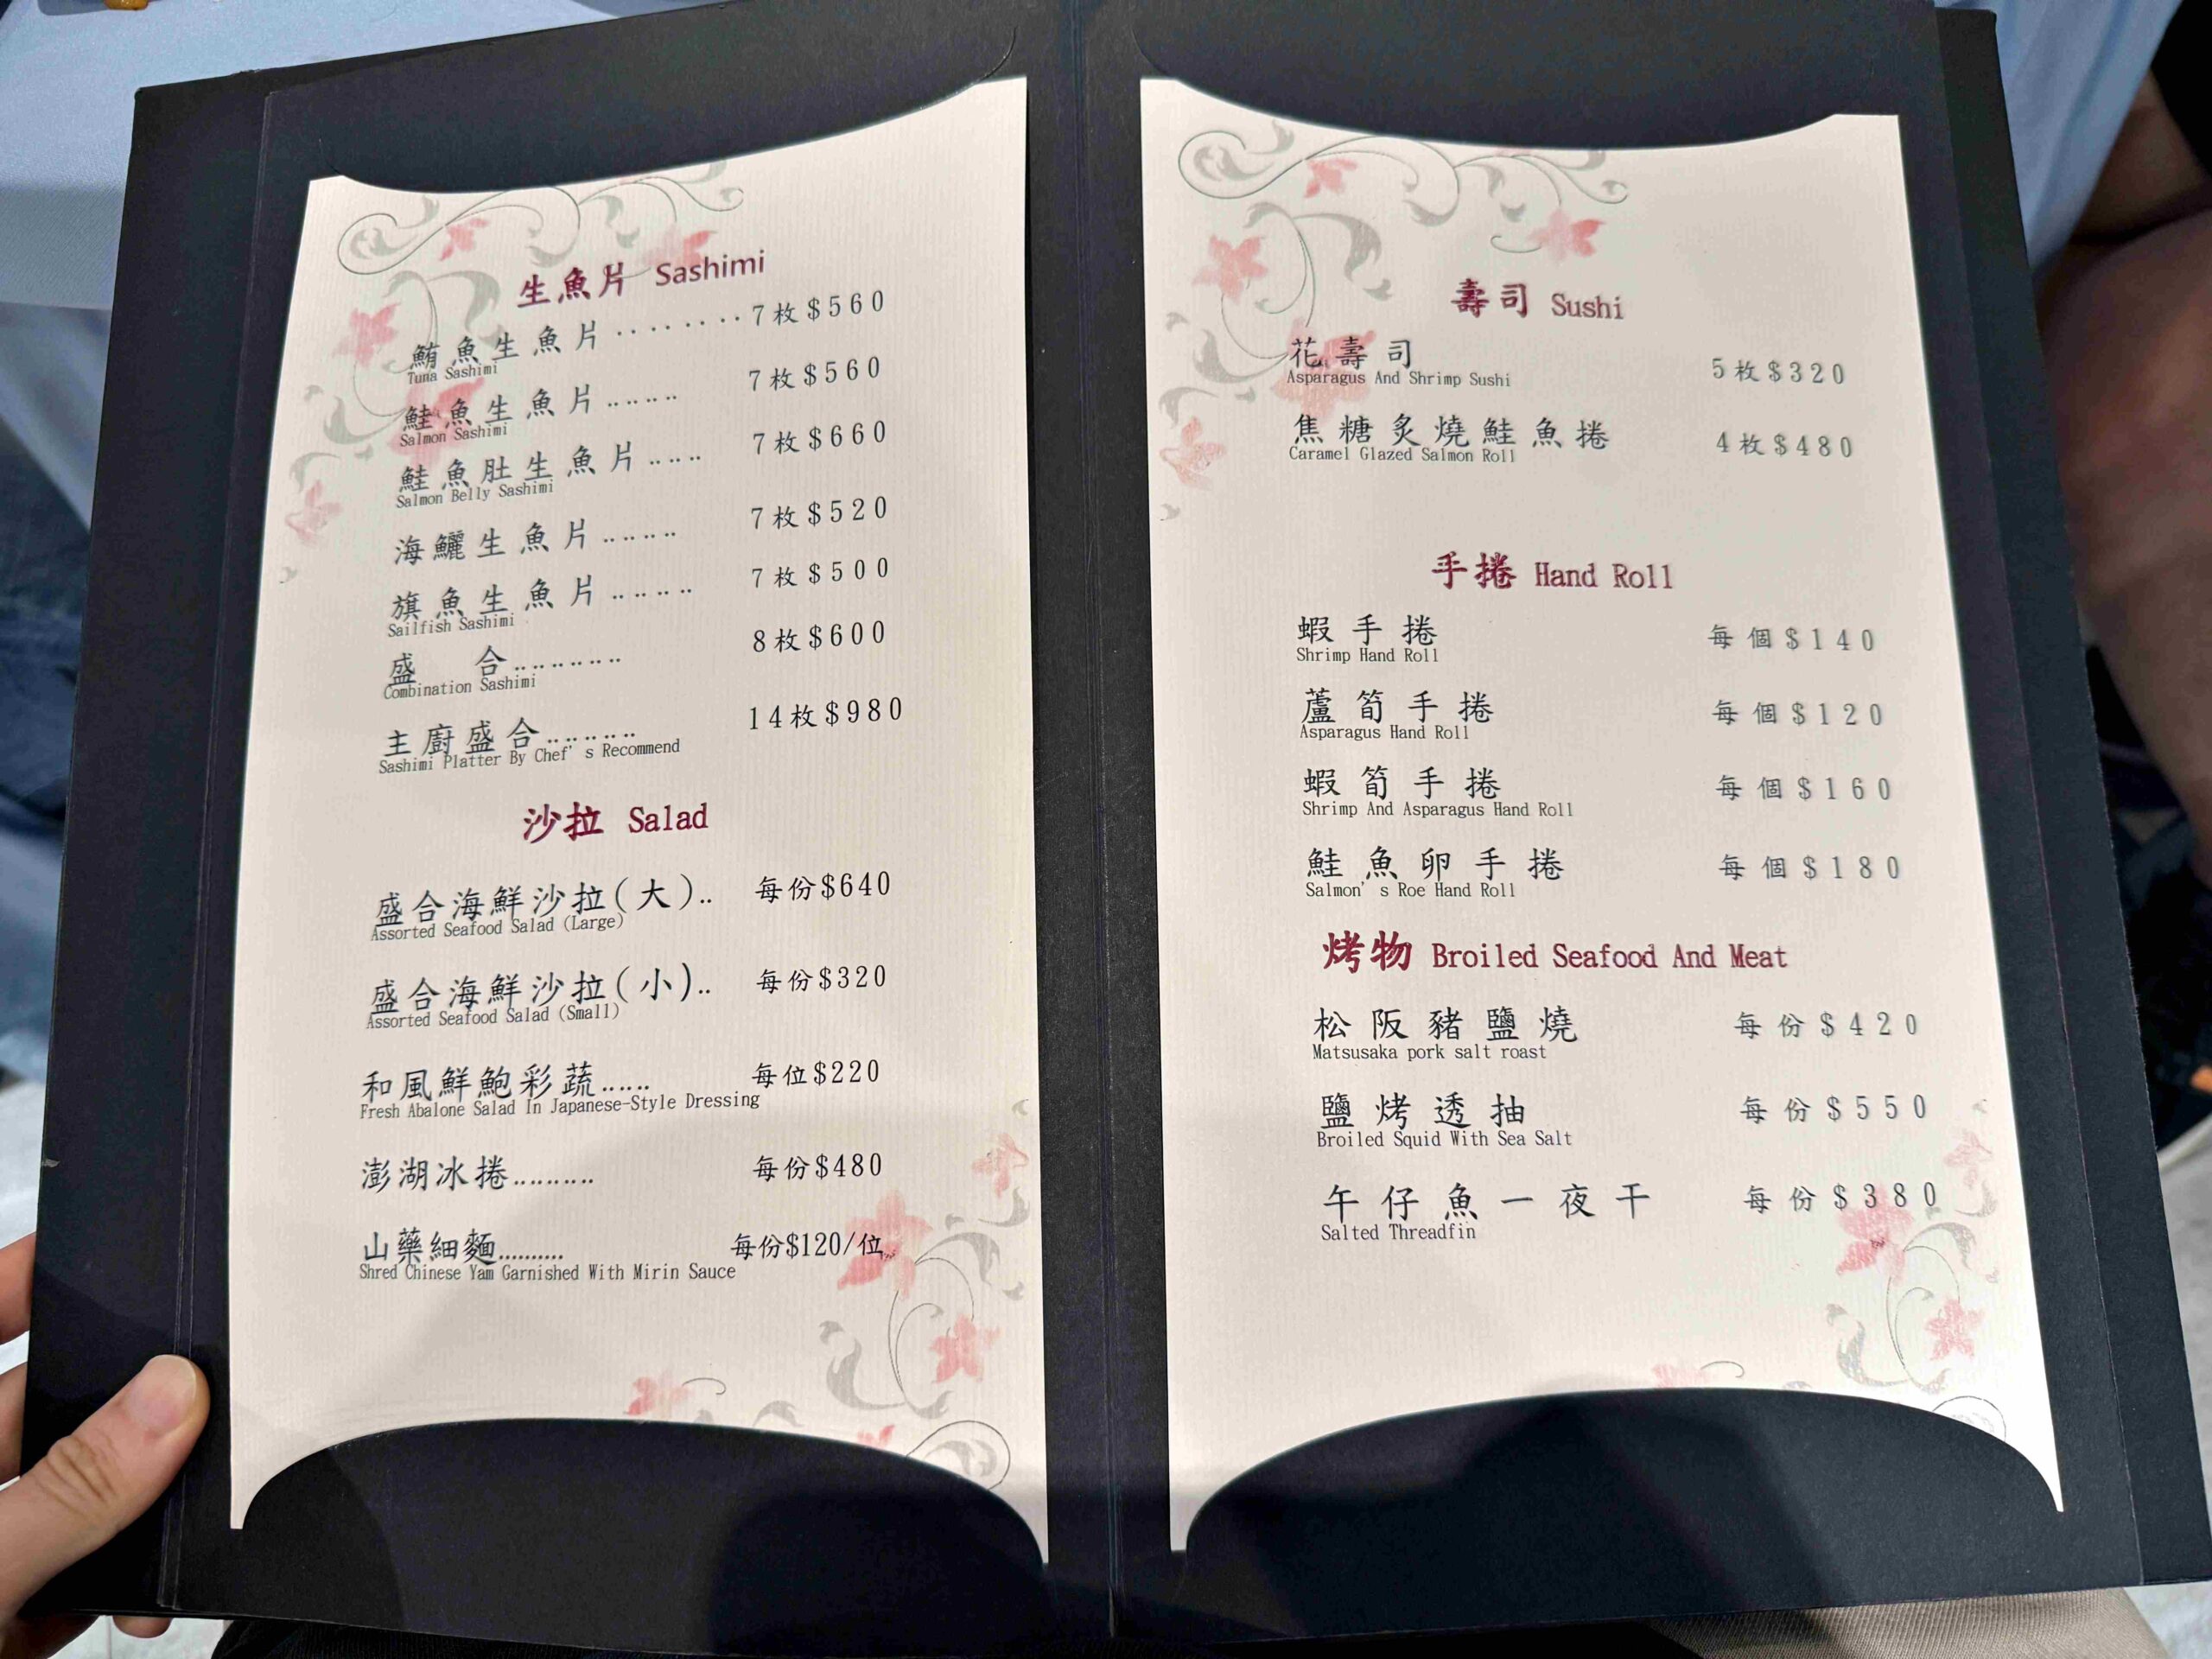 生魚片 Sashimi
鮪魚生魚片........7枚$560
Tuna Sashimi
鮭魚生魚片..... 7枚$560
Salmon Sashimi
鮭魚肚生魚片..... 7枚$660
Salmon Belly Sashimi
海鱺生魚片...... 7枚$520
旗魚生魚片...... 7枚$500
Sailfish Sashimi
盛 合......... 8枚$600
Combination Sashimi
主廚盛合....... 14枚$980
Sashimi Platter By Chef's Recommend
沙拉 Salad
盛合海鮮沙拉(大).. 每份$640
Assorted Seafood Salad (Large)
盛合海鮮沙拉(小).. 每份$320
Assorted Seafood Salad (Small)
和風鮮鮑彩蔬..... 每位$220
Fresh Abalone Salad In Japanese-Style Dressing
澎湖冰捲......... 每份$480
山藥細麵.......... 每份$120/位
Shred Chinese Yam Garnished With Mirin Sauce
壽司 Sushi
花壽司 5枚$320
Asparagus And Shrimp Sushi
焦糖炙燒鮭魚捲 4枚$480
Caramel Glazed Salmon Roll
手捲 Hand Roll
蝦手捲 每個$140
Shrimp Hand Roll
蘆筍手捲 每個$120
Asparagus Hand Roll
蝦筍手捲 每個$160
Shrimp And Asparagus Hand Roll
鮭魚卵手捲 每個$180
Salmon's Roe Hand Roll
烤物 Broiled Seafood And Meat
松阪豬鹽燒 每份$420
Matsusaka pork salt roast
鹽烤透抽 每份$550
Broiled Squid With Sea Salt
午仔魚一夜干 每份$380
Salted Threadfin